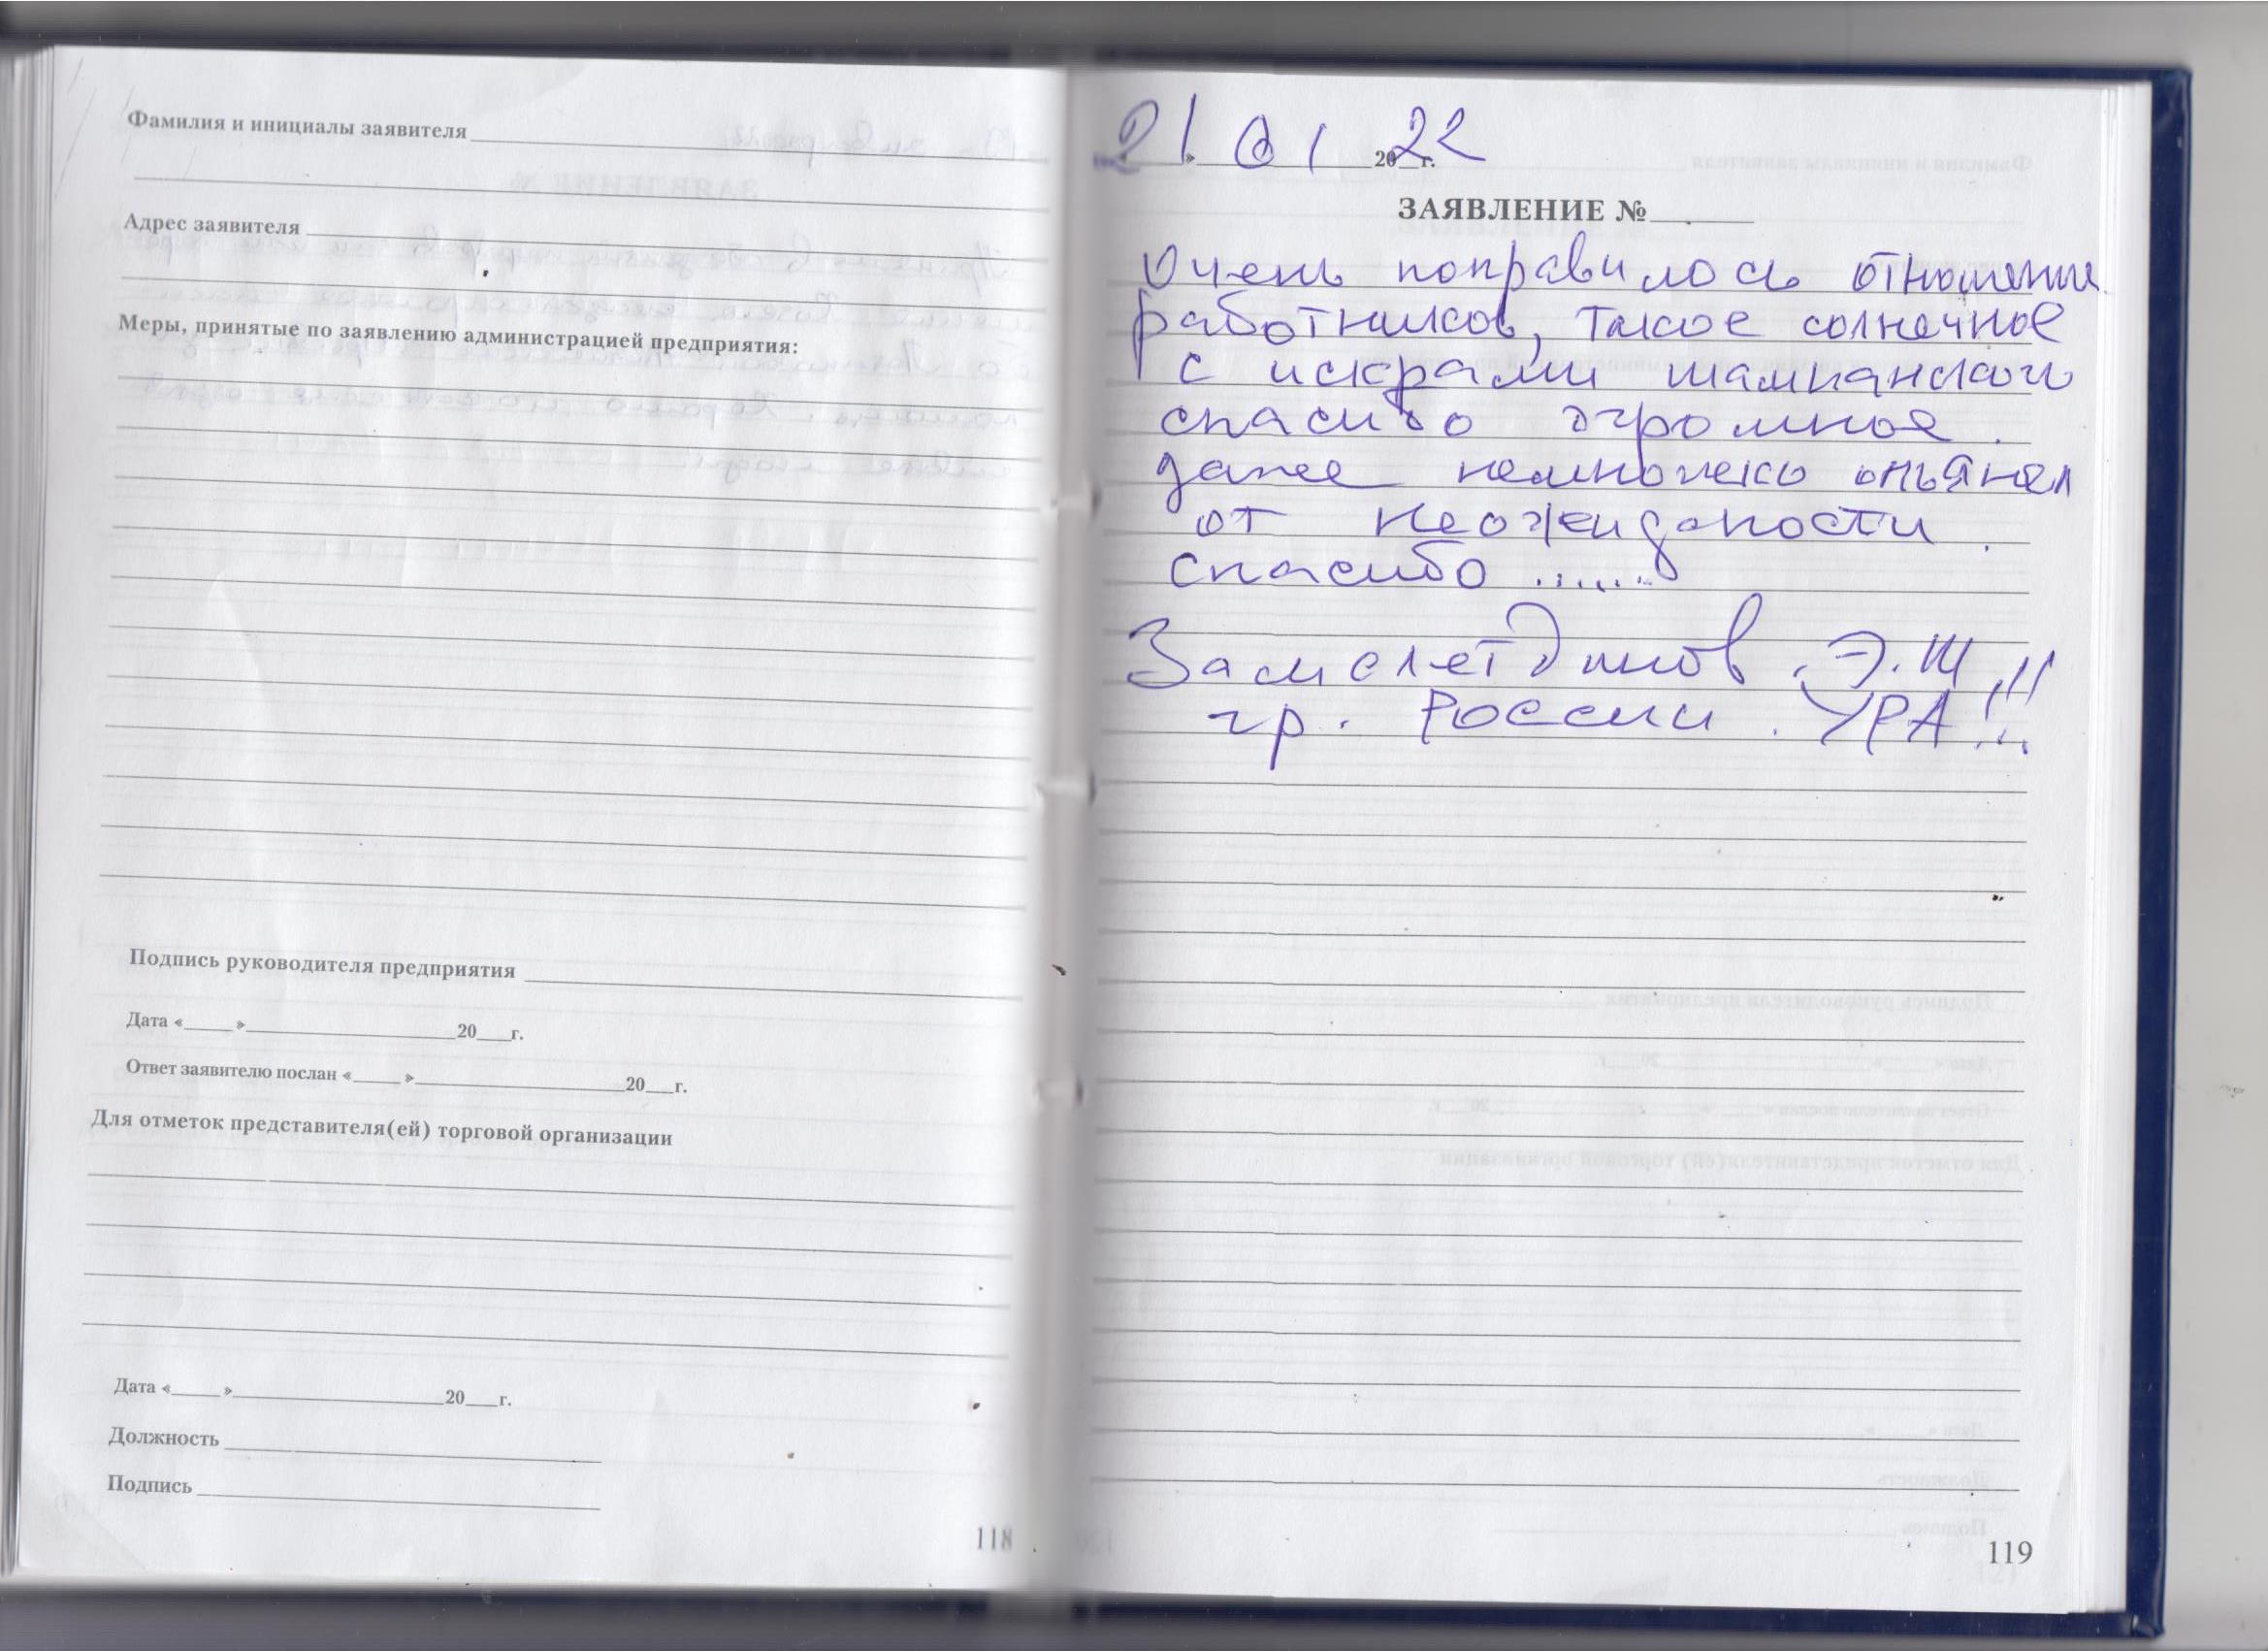 Фамилия и инициалы заявителя
Адрес заявителя
Меры, принятые по заявлению администрацией предприятия:
Подпись руководителя предприятия
Дата «____» ____ 20__г.
Ответ заявителю послан «____» ____ 20__г.
Для отметок представителя(ей) торговой организации
Дата «____» ____ 20__г.
Должность
Подпись
118
21 » 01 2022 г.
ЗАЯВЛЕНИЕ №
Очень понравилось отношение
работников, такое солнечное
с искрами шампанского
спасибо огромное.
даже немножко опьянел
от неожиданости.
спасибо .......
Замслетдинов Э.Ш
гр. России. УРА!!!
119